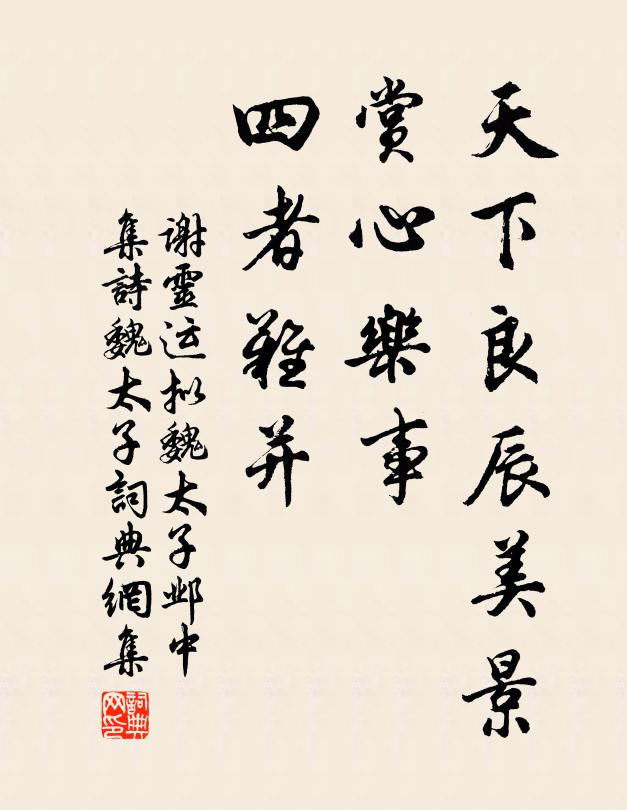 天下良辰美景
賞心樂事
四者難并
谢靈运拟魏太子邺中
集詩魏太子詞典網集
詞典
网印